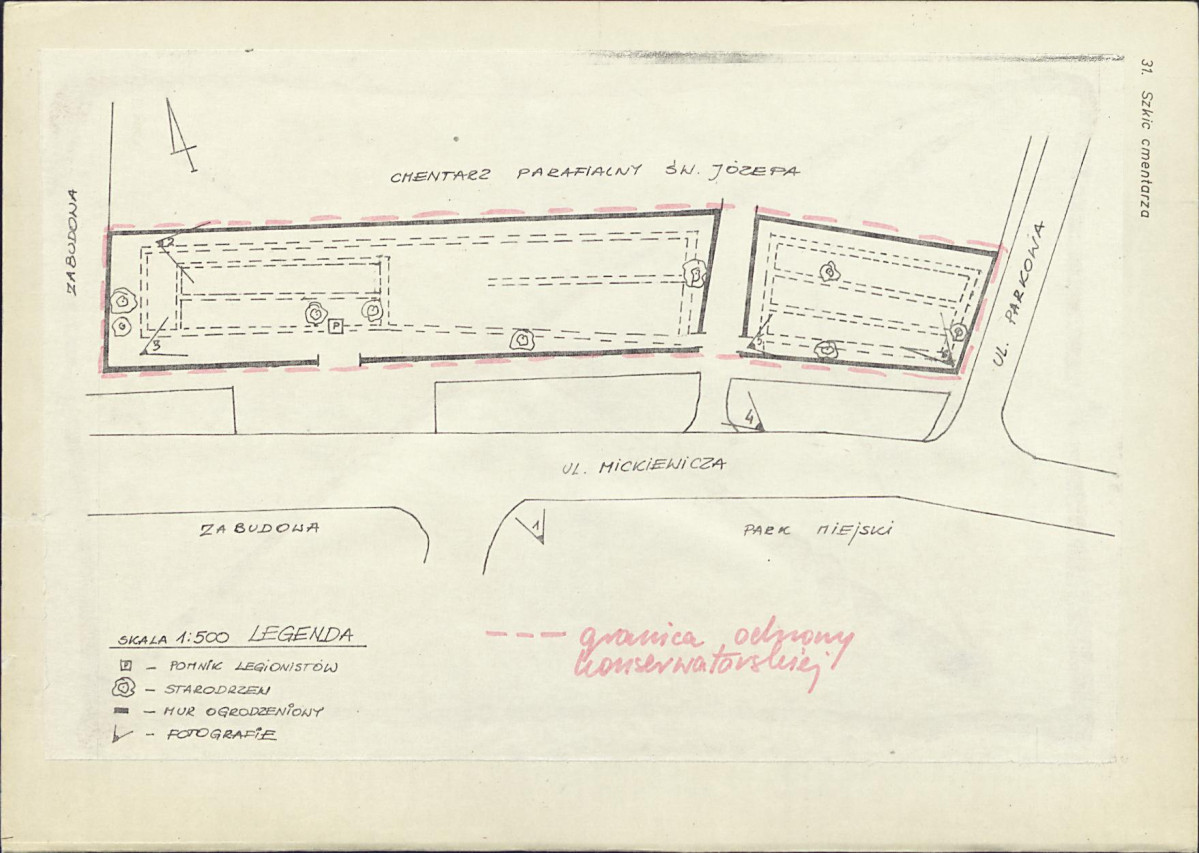 31. Szkic cmentarza
CMENTARZ PARAFIALNY ŚW. JÓZEFA
ZABUDOWA
UL. PARKOWA
2
3
P
5
4
UL. MICKIEWICZA
ZABUDOWA
1
PARK MIEJSKI
SKALA 1:500 LEGENDA
P – POMNIK LEGIONISTÓW
– STARODRZEW
– MUR OGRODZENIOWY
– FOTOGRAFIE
granica ochrony
konserwatorskiej